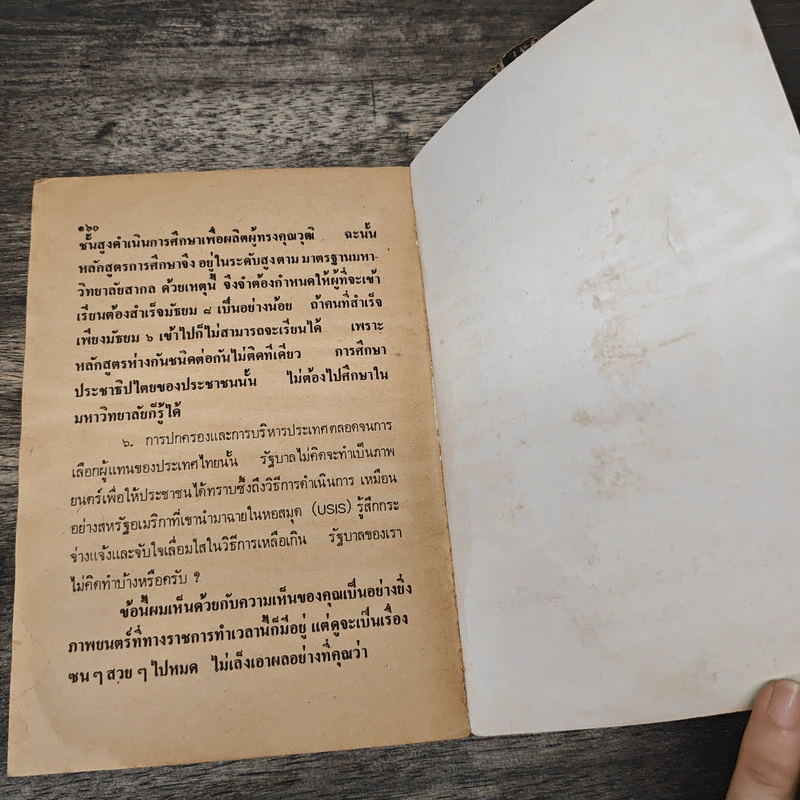 ๑๖๐
ชั้นสูงดำเนินการศึกษาเพื่อผลิตผู้ทรงคุณวุฒิ ฉะนั้น
หลักสูตรการศึกษาจึง อยู่ในระดับสูงตาม มาตรฐานมหา-
วิทยาลัยสากล ด้วยเหตุนี้ จึงจำต้องกำหนดให้ผู้ที่จะเข้า
เรียนต้องสำเร็จมัธยม ๘ เป็นอย่างน้อย ถ้าคนที่สำเร็จ
เพียงมัธยม ๖ เข้าไปก็ไม่สามารถจะเรียนได้ เพราะ
หลักสูตรห่างกันชนิดต่อกันไม่ติดทีเดียว การศึกษา
ประชาธิปไตยของประชาชนนั้น ไม่ต้องไปศึกษาใน
มหาวิทยาลัยก็รู้ได้
๖. การปกครองและการบริหารประเทศตลอดจนการ
เลือกผู้แทนของประเทศไทยนั้น รัฐบาลไม่คิดจะทำเป็นภาพ
ยนตร์เพื่อให้ประชาชนได้ทราบซึ้งถึงวิธีการดำเนินการ เหมือน
อย่างสหรัฐอเมริกาที่เขานำมาฉายในหอสมุด (USIS) รู้สึกกระ
จ่างแจ้งและจับใจเลื่อมใสในวิธีการเหลือเกิน รัฐบาลของเรา
ไม่คิดทำบ้างหรือครับ ?
ข้อนี้ผมเห็นด้วยกับความเห็นของคุณเป็นอย่างยิ่ง
ภาพยนตร์ที่ทางราชการทำเวลานี้ก็มีอยู่ แต่ดูจะเป็นเรื่อง
ซน ๆ สวย ๆ ไปหมด ไม่เล็งเอาผลอย่างที่คุณว่า